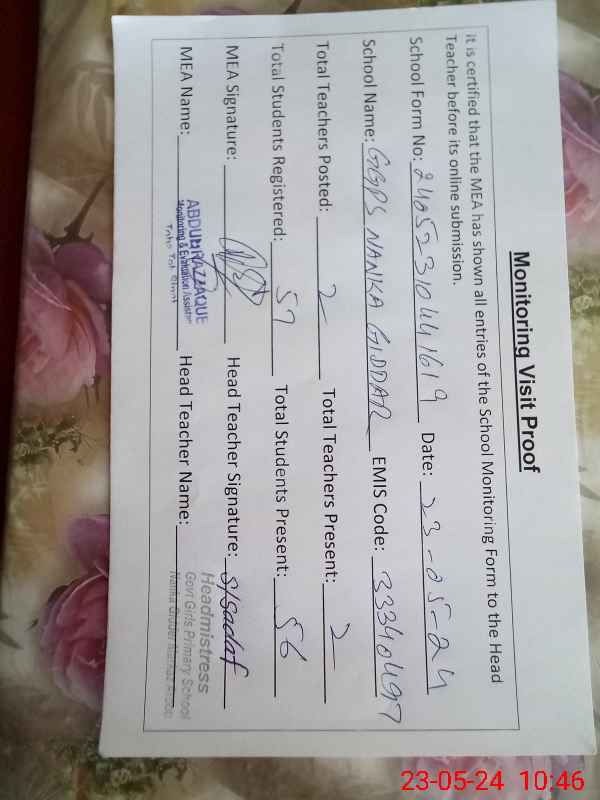 Monitoring Visit Proof
it is certified that the MEA has shown all entries of the School Monitoring Form to the Head
Teacher before its online submission.
School Form No: 240523104441619 Date: 23-05-24
School Name: GGPS NANKA GIDDAR EMIS Code: 33340497
Total Teachers Posted: 2 Total Teachers Present: 2
Total Students Registered: 57 Total Students Present: 56
MEA Signature: Head Teacher Signature: S/Sadaf
MEA Name: ABDUL RAZZAQUE Head Teacher Name: Headmistress
Monitoring & Evaluation Assistant Govt Girls Primary School
23-05-24 10:46